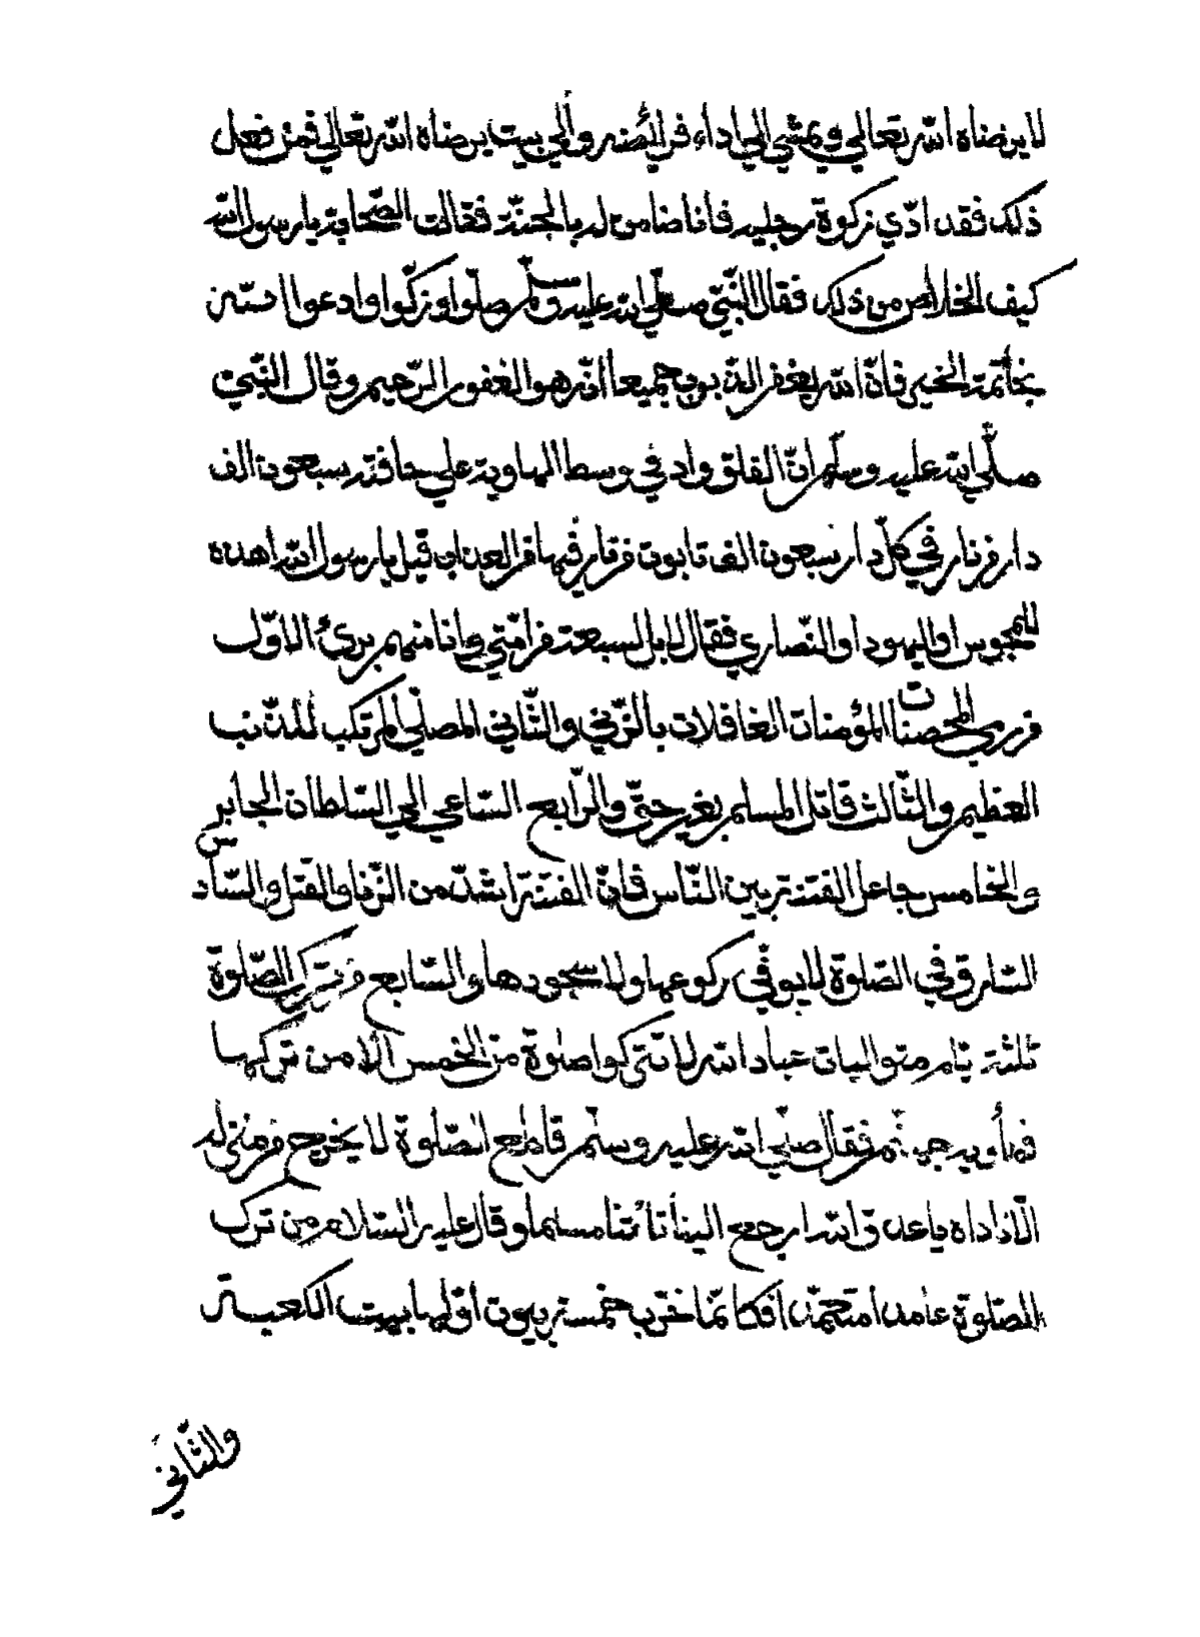 لا يرضاه الله تعالي ويمشي الي اداء فريضته والي بيت يرضاه الله تعالي فمن فعل
ذلك فقد ادّي زكوة رجليه فانا ضامن له بالجنّة فقالت الصّحابة يا رسول الله
كيف الخلاص من ذلك فقال النّبيّ صلّي الله عليه وسلّم صلّوا وزكّوا وادعوا الله
بخاتمة الخير فانّ الله يغفر الذّنوب جميعا انّه هو الغفور الرّحيم وقال النّبيّ
صلّي الله عليه وسلّم انّ الفلق واد في وسط الهاوية علي حافته سبعون الف
دار من نار في كلّ دار سبعون الف تابوت من نار فيها من العذاب قيل يا رسول الله اهذه
للمجوس او اليهود او النّصاري فقال لا بل لسبعة من امّتي وانا منهم بريّ الاوّل
من رمي المحصنات المؤمنات الغافلات بالزّني والثّاني المصلّي المرتكب للذّنب
العظيم والثّالث قاتل المسلم بغير حقّ والرّابع السّاعي الي السّلطان الجابر
والخامس جاعل الفتنة بين النّاس فانّ الفتنة اشدّ من الزّنا والقتل والسّادس
السّارق في الصّلوة لا يوفّي ركوعها ولا سجودها والسّابع من ترك الصّلوة
ثلثة ايّام متواليات عباد الله لا تتركوا صلوة من الخمس الّا من تركها
فمأويه جهنّم فقال صلّي الله عليه وسلّم قاطع الصّلوة لا يخرج من منزله
الّا ناداه يا عدوّ الله ارجع الينا تأتنا مسلما وقال عليه السّلام من ترك
الصّلوة عامدا متعمّدا فكانّما خرّب خمسة بيوت اوّلها بيت الكعبة
والثّاني